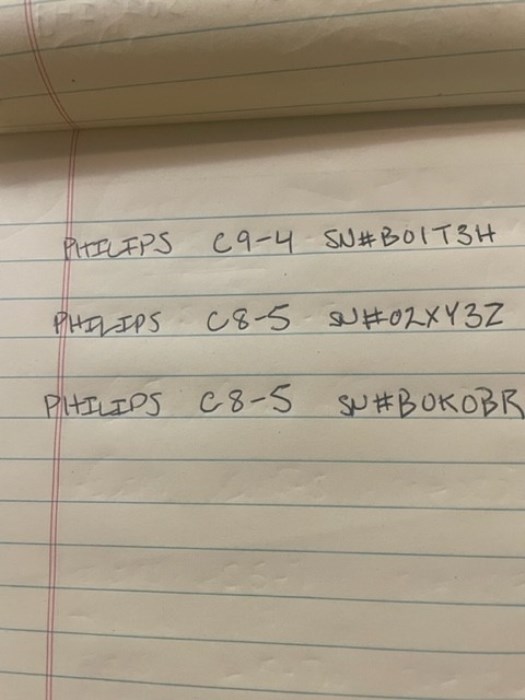 PHILIPS C9-4 SN#B01T3H
PHILIPS C8-5 SN#02XY3Z
PHILIPS C8-5 SN#B0K0BR